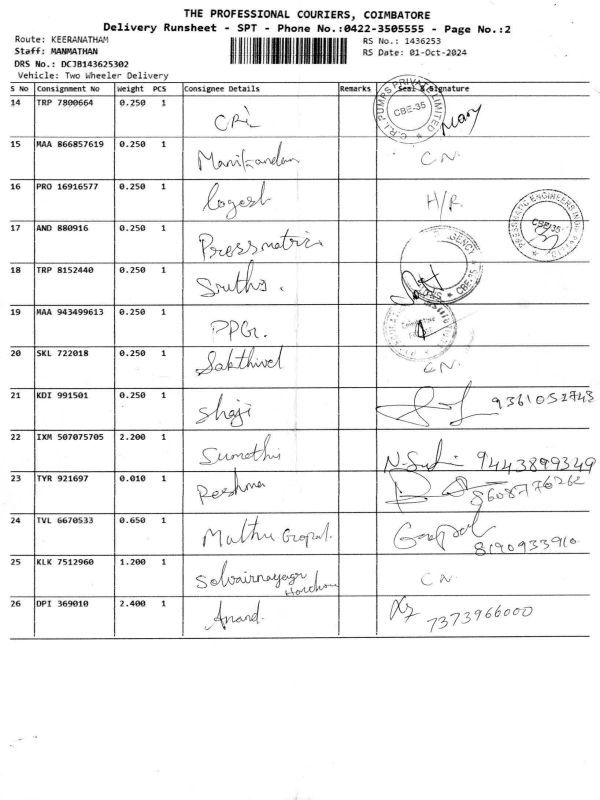 THE PROFESSIONAL COURIERS, COIMBATORE
Delivery Runsheet - SPT - Phone No.:0422-3505555 - Page No.:2
Route: KEERANATHAM
RS No.: 1436253
Staff: MANMATHAN
RS Date: 01-Oct-2024
DRS No.: DCJB143625302
Vehicle: Two Wheeler Delivery
S No Consignment No Weight PCS Consignee Details Remarks Seal & Signature
14 TRP 7800664 0.250 1 CRI C.R.I. PUMPS PRIVATE LIMITED CBE-35 Mary
15 MAA 866857619 0.250 1 Manikandan C N.
16 PRO 16916577 0.250 1 Logesh H/R
17 AND 880916 0.250 1 Pressmatric CBE-35
18 TRP 8152440 0.250 1 Sruthi. CBE-35
19 MAA 943499613 0.250 1 PPG. Coimbatore
20 SKL 722018 0.250 1 Sakthivel C N.
21 KDI 991501 0.250 1 Shaji 9361052743
22 IXM 507075705 2.200 1 Sumathi 9443899349
23 TYR 921697 0.010 1 Reshma 8608776262
24 TVL 6670533 0.650 1 Muthu Gopal. Gopal 8190933910
25 KLK 7512960 1.200 1 C N.
26 DPI 369010 2.400 1 Anand. 7373966000